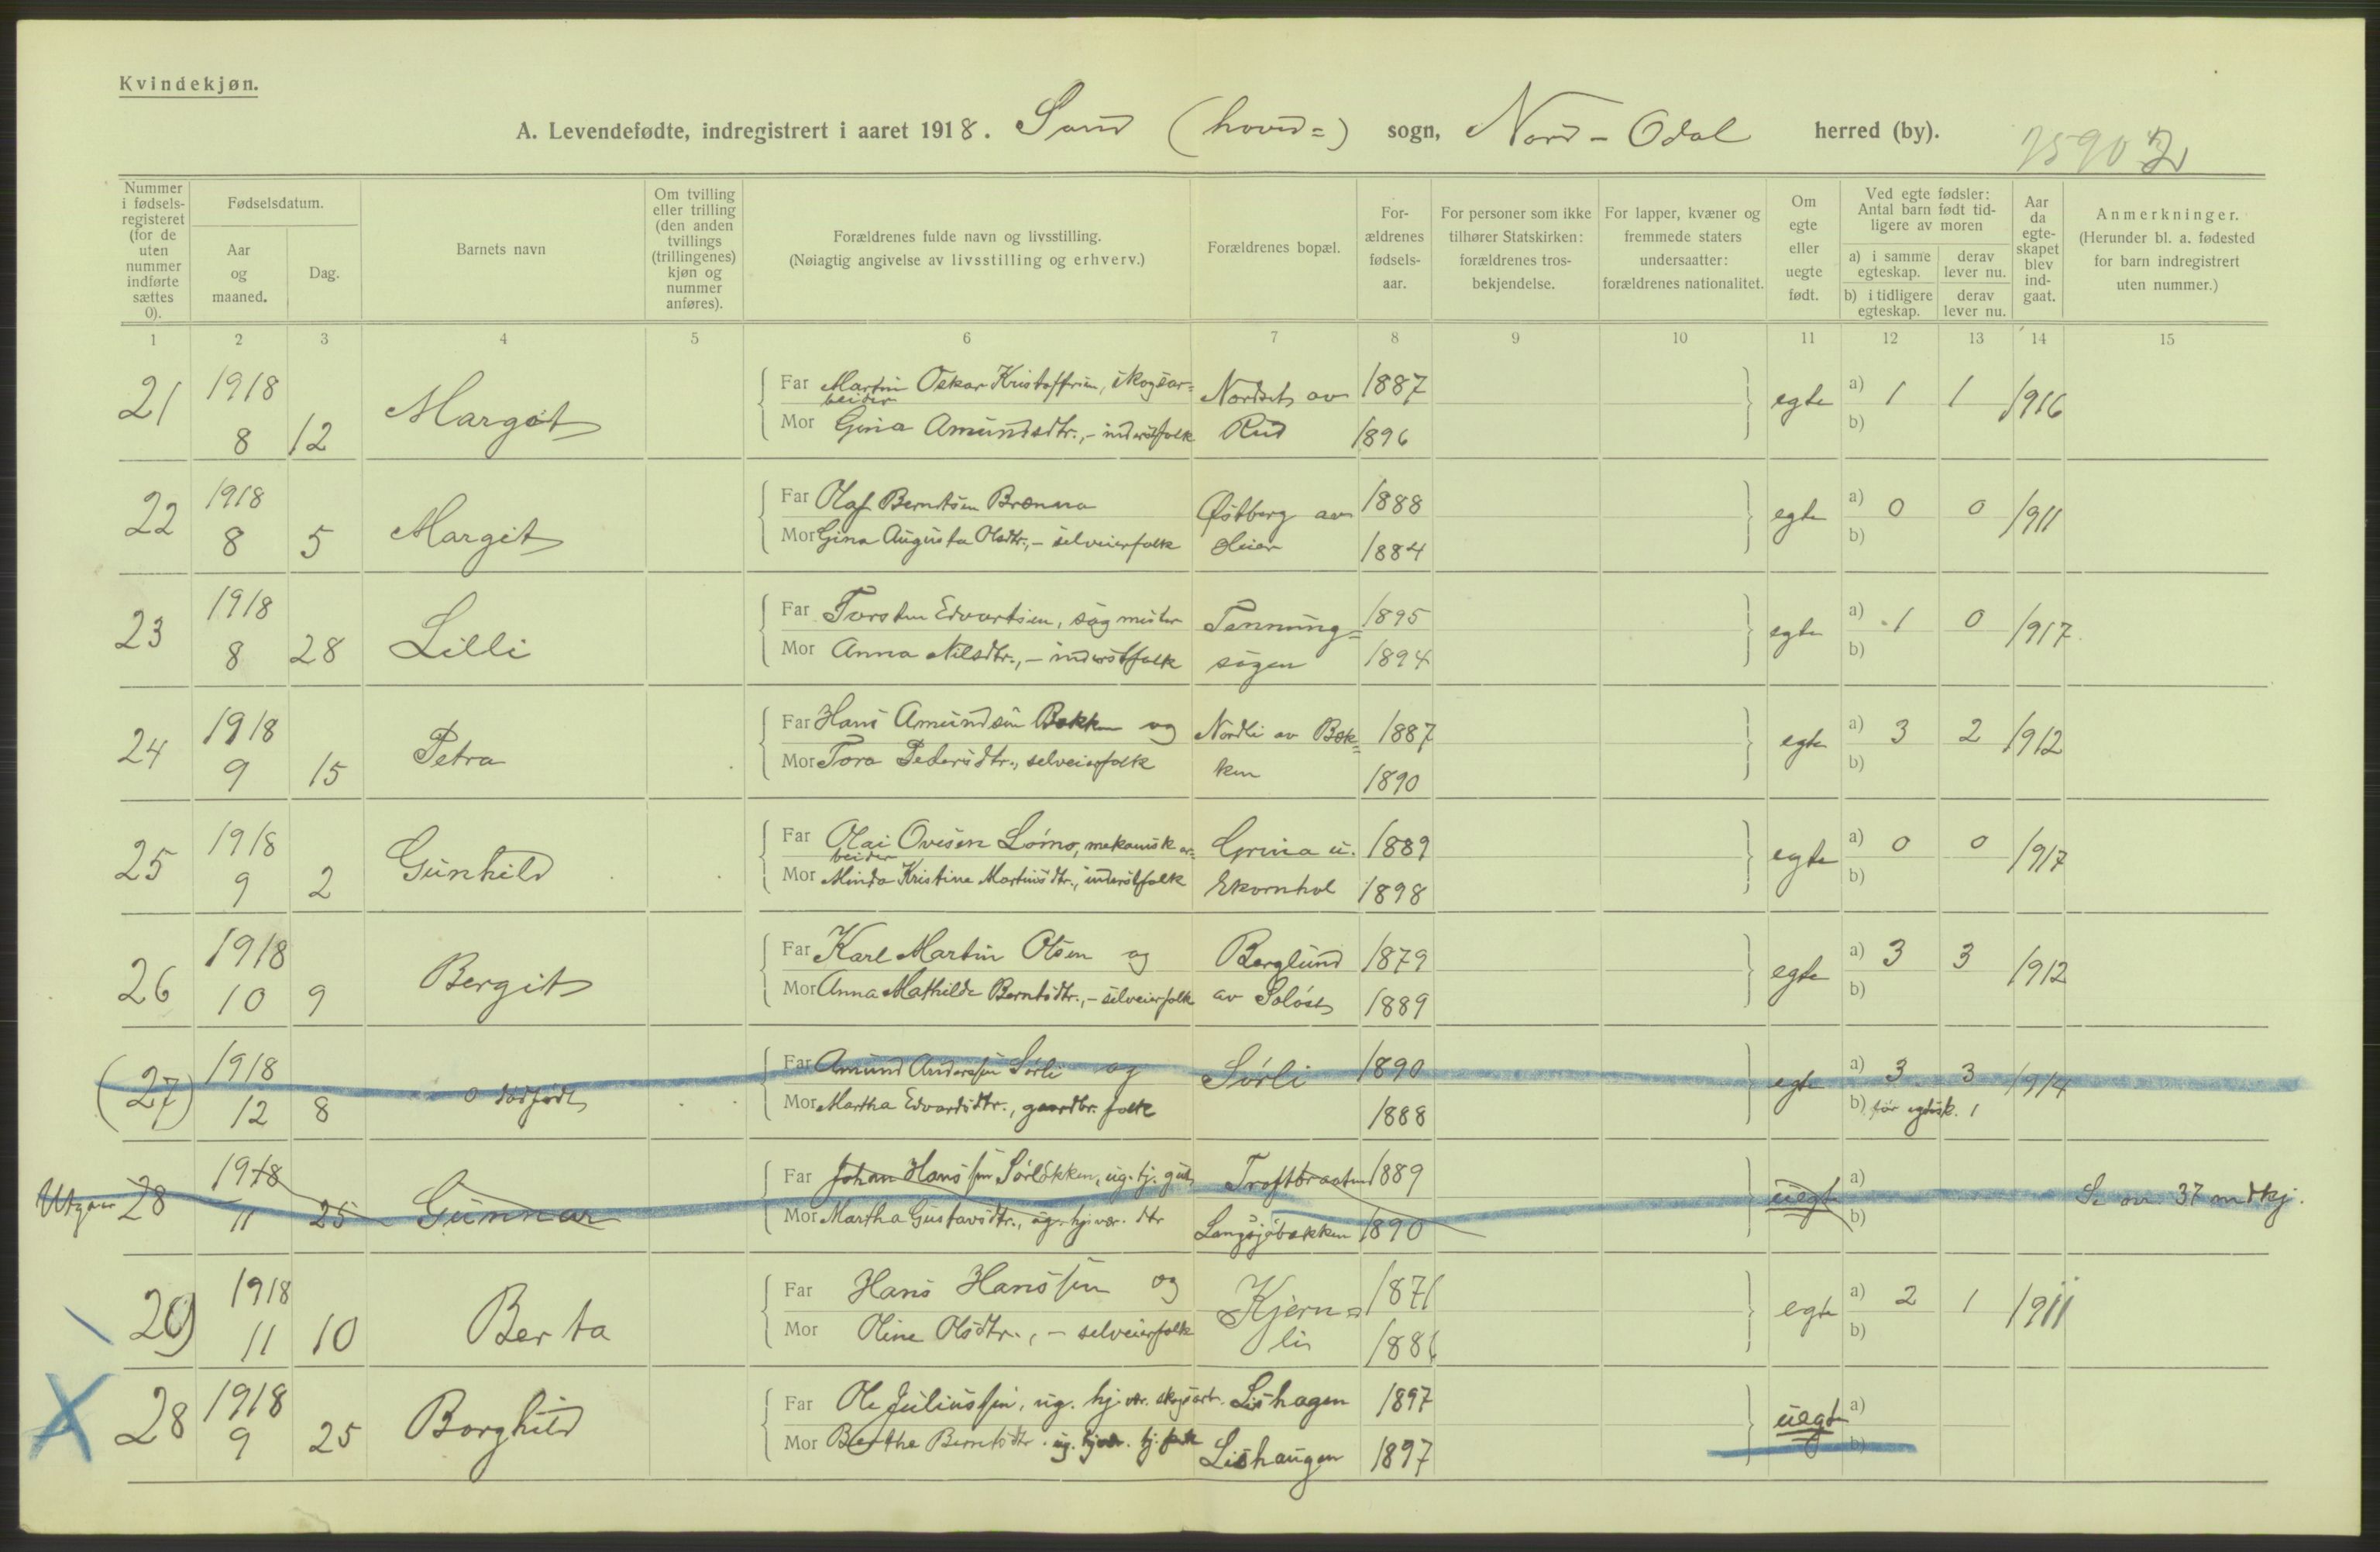 Kvindekjøn.
A. Levendefødte, indregistrert i aaret 1918. Sand (hoved=) sogn, Nord-Odal herred (by).
Nummer i fødsels-registeret (for de uten nummer indførte sættes 0).
Fødselsdatum.
Aar og maaned.
Dag.
Barnets navn
Om tvilling eller trilling (den anden tvillings (trillingenes) kjøn og nummer anføres).
Forældrenes fulde navn og livsstilling.
(Nøiagtig angivelse av livsstilling og erhverv.)
Forældrenes bopæl.
For-ældrenes fødsels-aar.
For personer som ikke tilhører Statskirken: forældrenes tros-bekjendelse.
For lapper, kvæner og fremmede staters undersaatter: forældrenes nationalitet.
Om egte eller uegte født.
Ved egte fødsler: Antal barn født tid-ligere av moren
a) i samme egteskap.
derav lever nu.
b) i tidligere egteskap.
derav lever nu.
Aar da egte-skapet blev ind-gaat.
Anmerkninger.
(Herunder bl. a. fødested for barn indregistrert uten nummer.)
1 2 3 4 5 6 7 8 9 10 11 12 13 14 15
21 1918 8 12 Margot
Far Martin Oskar Kristoffersen, skogsar=beider Nordset av 1887
Mor Gina Amundsdtr., - inderstfolk Rud 1896
egte a) 1 1 1916
b)
22 1918 8 5 Margit
Far Olaf Berntsen Brenna Østberg av 1888
Mor Gina Augusta Olsdtr., - selveierfolk Oleier 1884
egte a) 0 0 1911
b)
23 1918 8 28 Lilli
Far Torsten Edvartsen, sagmester Tennung= 1895
Mor Anna Nilsdtr., - inderstfolk sagen 1894
egte a) 1 0 1917
b)
24 1918 9 15 Petra
Far Hans Amundsen Bakken og Nordli av Bak= 1887
Mor Tora Pedersdtr., selveierfolk ken 1890
egte a) 3 2 1912
b)
25 1918 9 2 Gunhild
Far Olai Ovesen Lømo, mekanisk ar=beider Grina u. 1889
Mor Minda Kristine Martinsdtr., inderstfolk Ekornhol 1898
egte a) 0 0 1917
b)
26 1918 10 9 Bergit
Far Karl Martin Olsen og Berglund 1879
Mor Anna Mathilde Berntsdtr., - selveierfolk av Soløst 1889
egte a) 3 3 1912
b)
(27) 1918 12 8 0 dødfødt
Far Amund Anderssen Sørli og Sørli 1890
Mor Martha Edvardsdtr., gaardbr. folk 1888
egte a) 3 3 1914
b) før egtesk. 1
Utgaar 28 1918 11 25 Gunnar
Far Johan Hanssen Sørløkken, ug. hj. gut Troftbraaten 1889
Mor Martha Gustavsdtr., ug. hjvær. dtr Langsjøbakken 1890
uegte a)
b)
Se 37 mdkj.
29 1918 11 10 Berta
Far Hans Hanssen og Kjern= 1871
Mor Oline Olsdtr., - selveierfolk li 1881
egte a) 2 1 1911
b)
28 1918 9 25 Borghild
Far Ole Juliussen, ug. hj.vær. skogsarb. Lishagen 1897
Mor Berthe Berntsdtr. ug. hjvær. Lishaugen 1897
uegte a)
b)